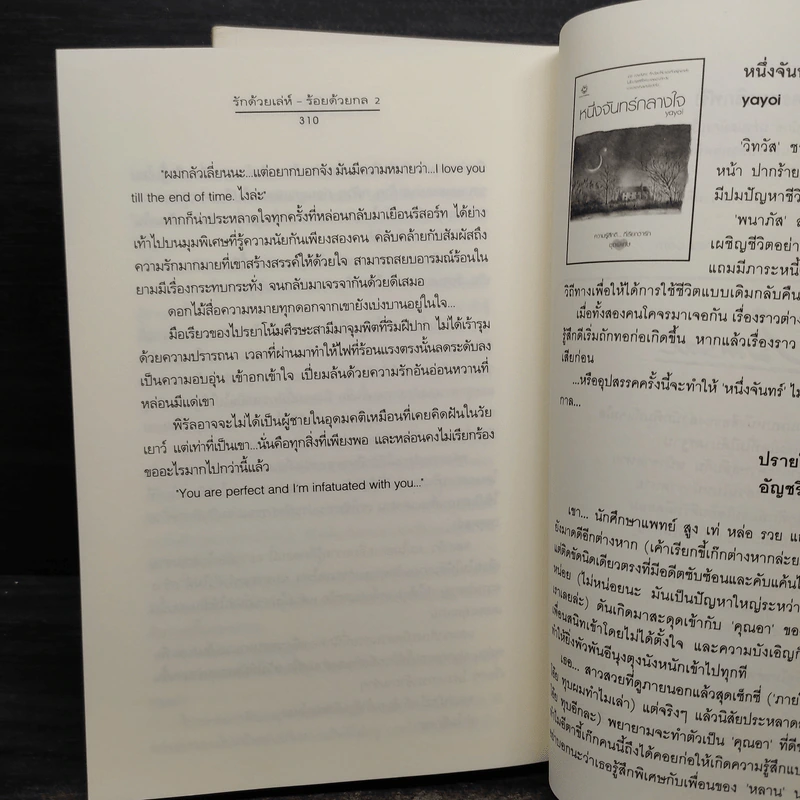 รักด้วยเล่ห์ - ร้อยด้วยกล 2
310
"ผมกลัวเลี่ยนนะ...แต่อยากบอกจัง มันมีความหมายว่า...I love you
till the end of time. ไงล่ะ"
หากก็น่าประหลาดใจทุกครั้งที่หล่อนกลับมาเยือนรีสอร์ท ได้ย่าง
เท้าไปบนมุมพิเศษที่รู้ความนัยกันเพียงสองคน คลับคล้ายกับสัมผัสถึง
ความรักมากมายที่เขาสร้างสรรค์ให้ด้วยใจ สามารถสยบอารมณ์ร้อนใน
ยามมีเรื่องกระทบกระทั่ง จนกลับมาเจรจากันด้วยดีเสมอ
ดอกไม้สื่อความหมายทุกดอกจากเขายังเบ่งบานอยู่ในใจ...
มือเรียวของไปรยาโน้มศีรษะสามีมาจุมพิตที่ริมฝีปาก ไม่ได้เร้ารุม
ด้วยความปรารถนา เวลาที่ผ่านมาทำให้ไฟที่ร้อนแรงตรงนั้นลดระดับลง
เป็นความอบอุ่น เข้าอกเข้าใจ เปี่ยมล้นด้วยความรักอันอ่อนหวานที่
หล่อนมีแด่เขา
พิรัลอาจจะไม่ได้เป็นผู้ชายในอุดมคติเหมือนที่เคยคิดฝันในวัย
เยาว์ แต่เท่าที่เป็นเขา...นั่นคือทุกสิ่งที่เพียงพอ และหล่อนคงไม่เรียกร้อง
ขออะไรมากไปกว่านี้แล้ว
"You are perfect and I'm infatuated with you..."
หนึ่งจันทร์กลางใจ
yayoi
หนึ่งจันท
yayoi
'วิทวัส' ช
หน้า ปากร้าย
มีปมปัญหาชีวิ
'พนาภัส' ส
เผชิญชีวิตอย่า
แถมมีภาระหนี้
วิถีทางเพื่อให้ได้การใช้ชีวิตแบบเดิมกลับคืน
เมื่อทั้งสองคนโคจรมาเจอกัน เรื่องราวต่าง
รู้สึกดีเริ่มถักทอก่อเกิดขึ้น หากแล้วเรื่องราว
เสียก่อน
...หรืออุปสรรคครั้งนี้จะทำให้ 'หนึ่งจันทร์' ไม
กาล...
ปราย
อัญชรี
เขา... นักศึกษาแพทย์ สูง เท่ หล่อ รวย แถ
ยังมาดดีอีกต่างหาก (เค้าเรียกขี้เก๊กต่างหากล่ะย
แต่ติดขัดนิดเดียวตรงที่มีอดีตซับซ้อนและคับแค้นใ
หน่อย (ไม่หน่อยนะ มันเป็นปัญหาใหญ่ระหว่า
เราเลยล่ะ) ดันเกิดมาสะดุดเข้ากับ 'คุณอา' ขอ
เพื่อนสนิทเข้าโดยไม่ได้ตั้งใจ และความบังเอิญก็
ทำให้ยิ่งพัวพันอีนุงตุงนังหนักเข้าไปทุกที
เธอ... สาวสวยที่ดูภายนอกแล้วสุดเซ็กซี่ ('ภายใ
โอ๊ย ทุบผมทำไมเล่า) แต่จริงๆ แล้วนิสัยประหลาด
โอ๊ย ทุบอีกละ) พยายามจะทำตัวเป็น 'คุณอา' ที่ดีข
ทำไมอีตาขี้เก๊กคนนี้ถึงได้คอยก่อให้เกิดความรู้สึกแป
อย่าบอกนะว่าเธอรู้สึกพิเศษกับเพื่อนของ 'หลาน' น